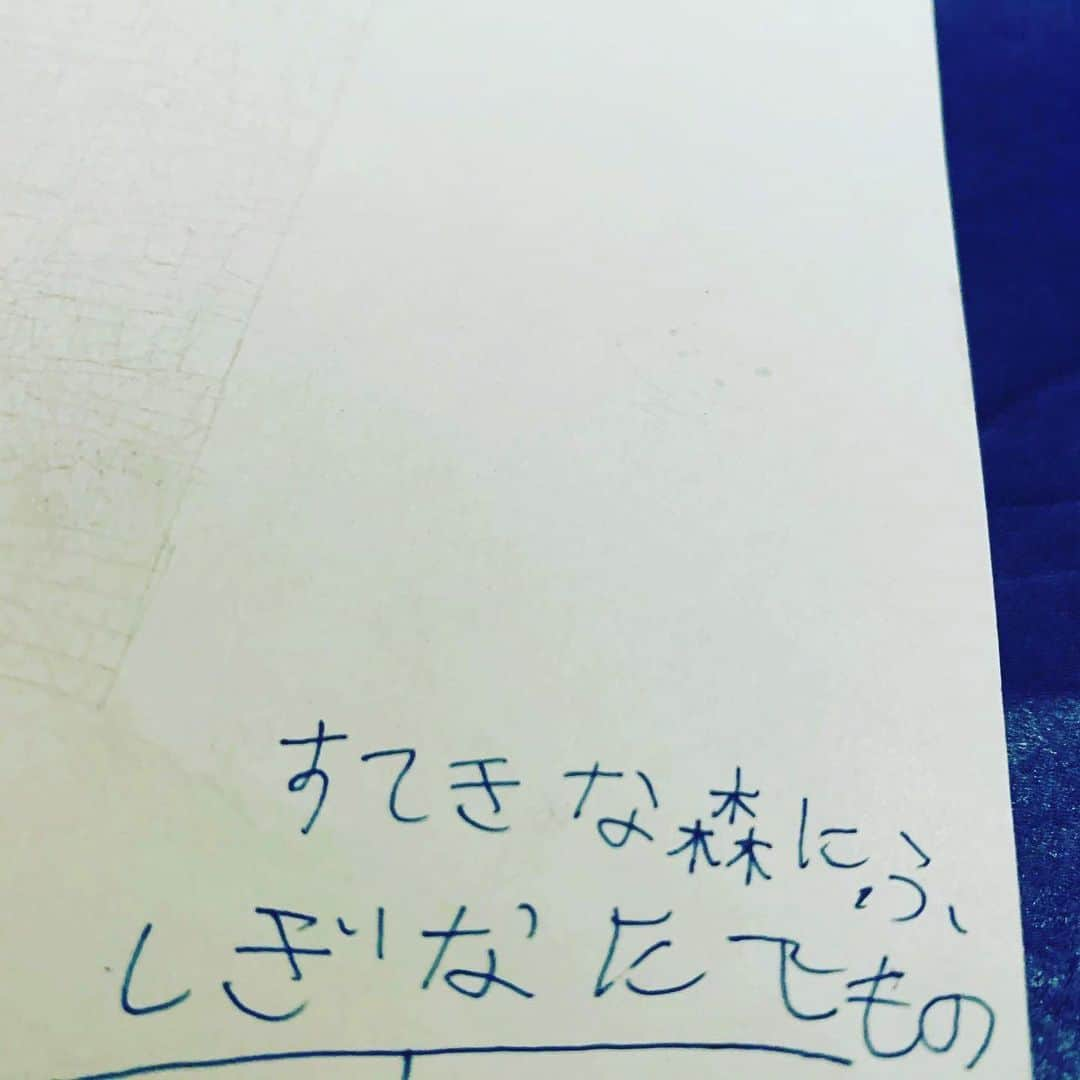 すてきな森にふ
しぎなたてもの